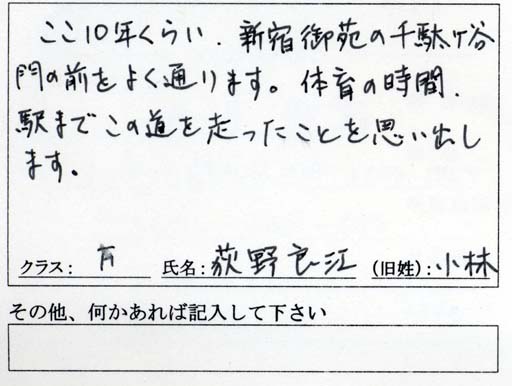 ここ10年くらい、新宿御苑の千駄ヶ谷
門の前をよく通ります。体育の時間、
駅までこの道を走ったことを思い出し
ます。
クラス: 氏名:荻野良江 (旧姓):小林
その他、何かあれば記入して下さい